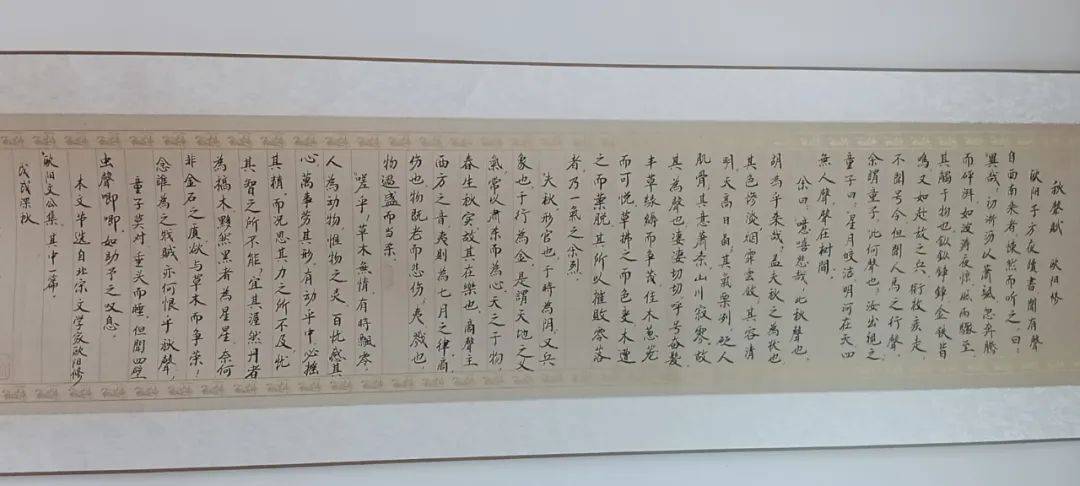 秋聲賦 歐阳修
歐阳子方夜讀書聞有聲
自西南来者悚然而听之曰:
異哉!初淅沥以蕭颯忽奔騰
而砰湃,如波濤夜惊風雨驟至
其觸于物也鏦鏦錚錚金鉄皆
鳴又如赴敌之兵衔枚疾走
不聞号令但聞人馬之行聲,
余謂童子此何聲也,汝出視之
童子曰,星月皎洁明河在天四
無人聲聲在树間
余曰,噫嘻悲哉,此秋聲也,
胡為乎来哉,盖夫秋之為状也
其色惨淡,烟霏雲敛,其容清
明,天高日晶,其氣栗冽,砭人
肌骨,其意蕭条山川寂寥故
其為聲也凄凄切切呼号奋發
丰草绿縟而争茂佳木葱茏
而可悦草拂之而色变木遭
之而葉脱,其所以摧敗零落
者,乃一氣之余烈,
夫秋形官也,于時為阴,又兵
象也,于行為金,是謂天地之义
氣,常以肃杀而為心天之于物
春生秋实,故其在樂也,商聲主
西方之音,夷則為七月之律,商,
伤也,物既老而悲伤,夷戮也,
物過盛而当杀,
嗟乎!草木無情,有時飄零,
人為动物,惟物之灵,百忧感其
心,萬事劳其形,有动乎中,必摇
其精,而况思其力之所不及,忧
其智之所不能,宜其渥然丹者
為槁木,黟然黑者為星星,奈何
非金石之质,欲与草木而争荣!
念谁為之戕賊,亦何恨乎秋聲,
童子莫对,垂头而睡,但聞四壁
虫聲唧唧,如助予之叹息,
本文节选自北宋文学家歐阳修
歐阳文公集,其中一篇,
戊戌深秋